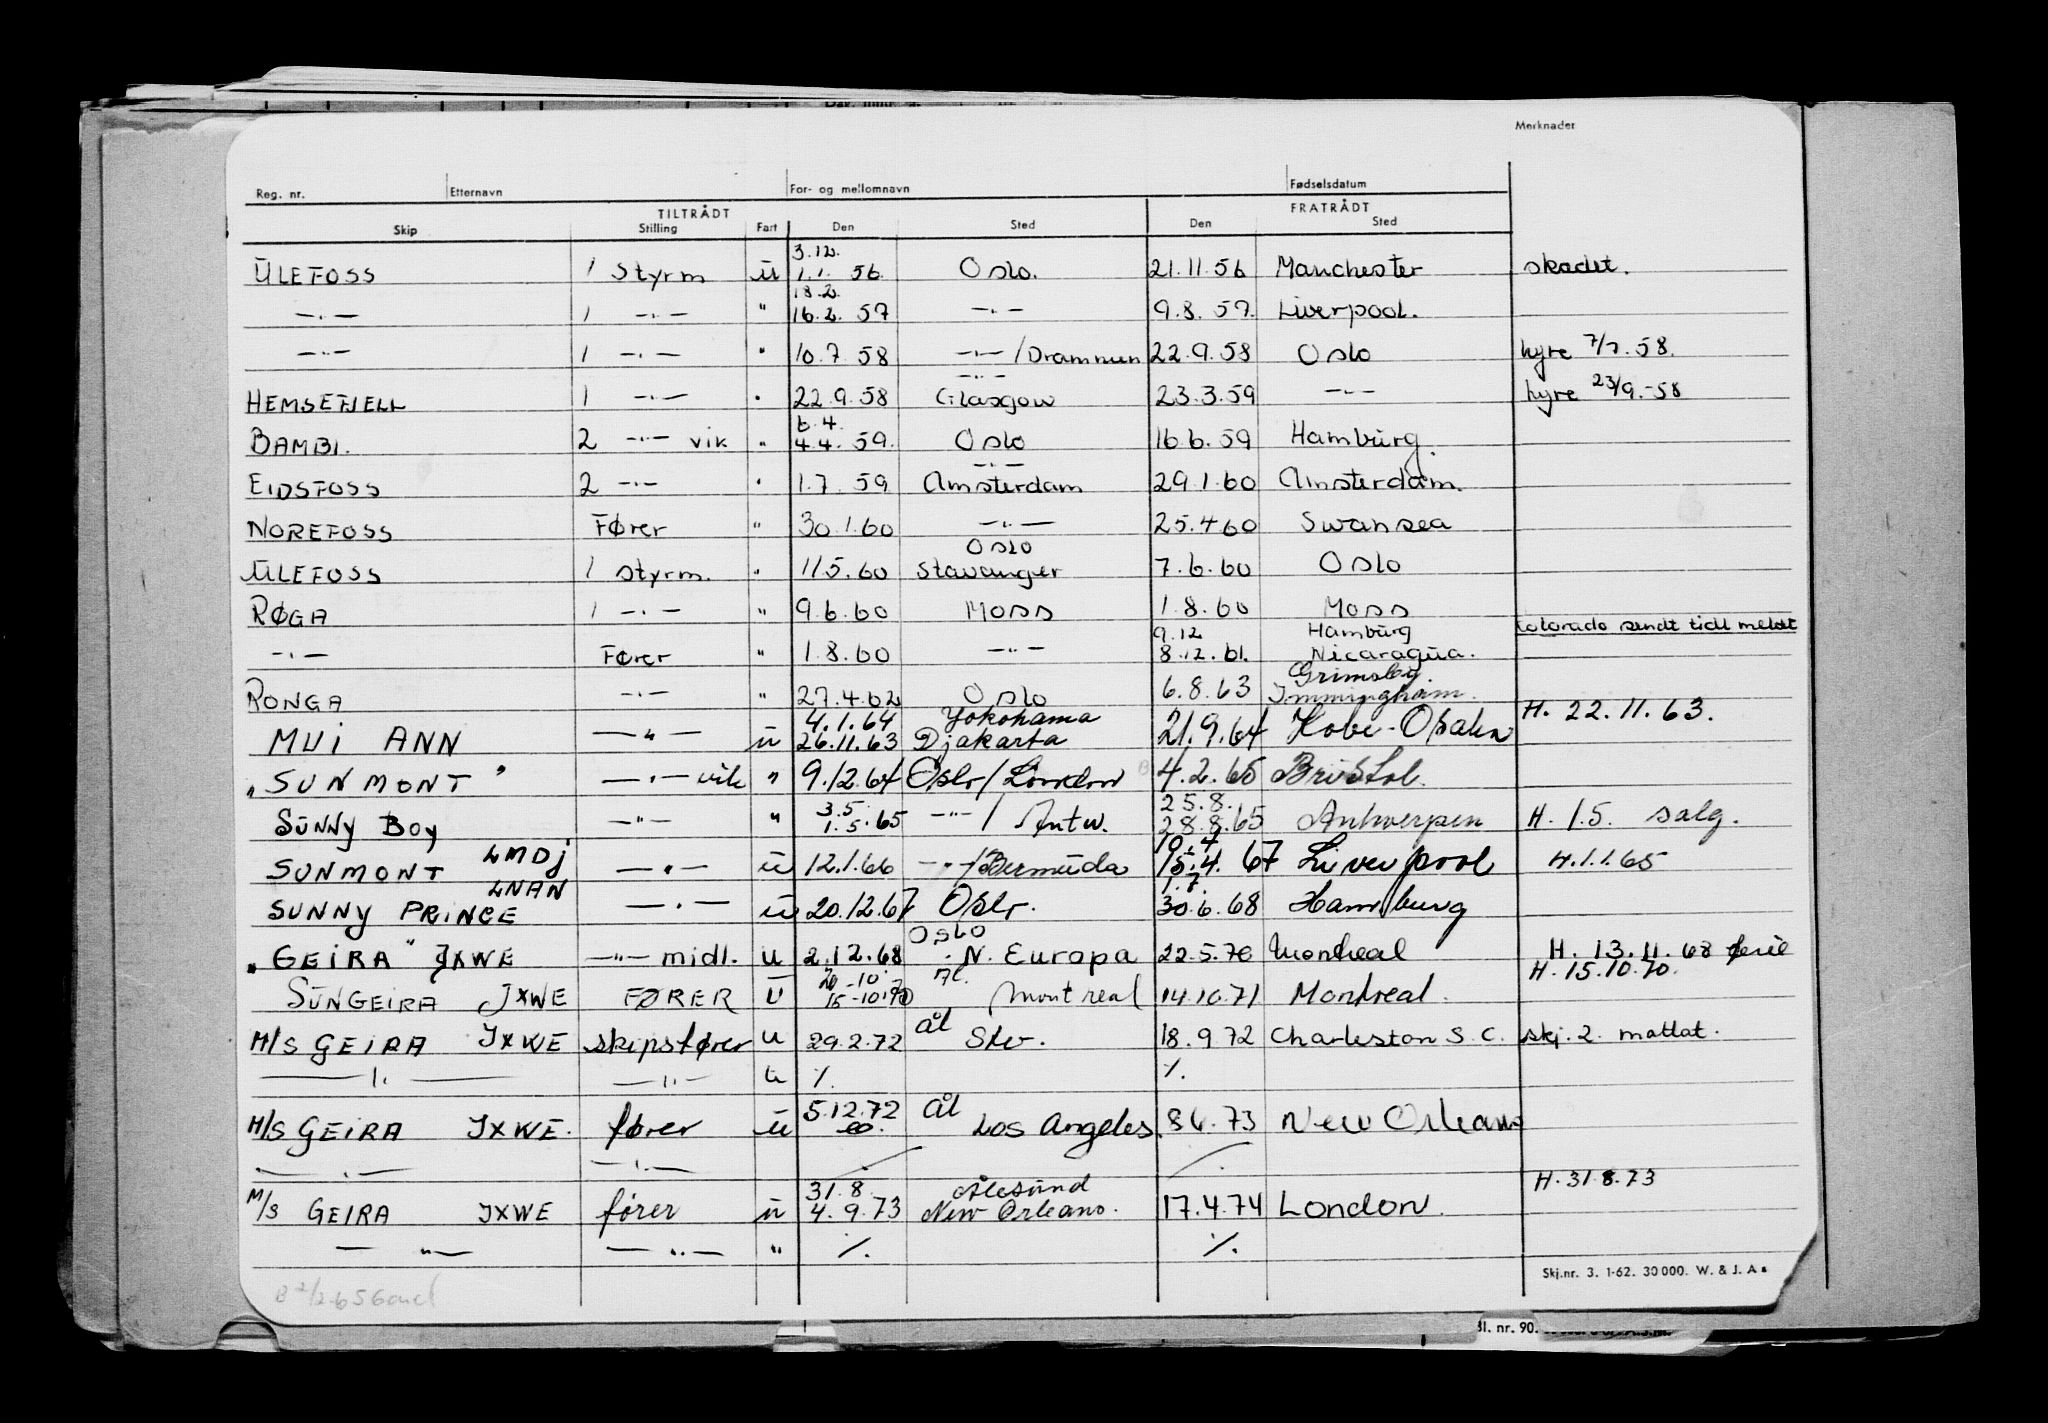 Merknader
Reg. nr. Etternavn For- og mellomnavn Fødselsdatum
TILTRÅDT FRATRÅDT
Skip Stilling Fart Den Sted Den Sted
3.12.
ULEFOSS 1 Styrm u 1.1. 56. Oslo. 21.11.56 Manchester skadet.
18.2.
—"— 1 —"— " 16.2. 57 —"— 9.8. 57. Liverpool.
—"— 1 —"— " 10.7 58 —"—/Drammen 22.9.58 Oslo hyre 7/7.58.
—"—
HEMSEFJELL 1 —"— " 22.9.58 Glasgow 23.3.59 —"— hyre 23/9.-58
6.4.
BAMBI. 2 —"— vik " 4.4. 59. Oslo 16.6.59 Hamburg.
—"—
EIDSFOSS 2 —"— " 1.7. 59 Amsterdam 29.1.60 Amsterdam.
NOREFOSS Fører " 30.1.60 —"— 25.4 60 Swansea
Oslo
ULEFOSS 1 styrm. " 11 5.60 Stavanger 7.6.60 Oslo
RØGA 1 —"— " 9.6.60 Moss 1.8.60 Moss
9.12 Hamburg Colorado sendt tidl meldt
—"— Fører " 1.8.60 —"— 8.12.61. Nicaragua.
Grimsby.
RONGA —"— " 27.4.62 Oslo 6.8.63 Immingham.
4.1.64 Yokohama H. 22.11.63.
MUI ANN —"— u 26.11.63 Djakarta 21.9.64 Kobe-Osaka
"SUNMONT" —"— vik " 9.12.64 Oslo/London 4.2.65 Bristol.
3.5. 25.8.
SUNNY BOY —"— " 1.5.65 —"—/ Antw. 28.8.65 Antwerpen H. 1.5. salg.
19.4
SUNMONT LMDJ —"— u 12.1.66 —"—/Bermuda 15.4.67 Liverpool H.1.1.65
LNAN 1.7.
SUNNY PRINCE —"— u 20.12.67 Oslo. 30.6.68 Hamburg
Oslo
"GEIRA" JXWE —"— midl. u 2.12.68 N. Europa 22.5.70 Montreal H. 13.11.68 ferie
20-10. Ål. H. 15.10.70.
SUNGEIRA JXWE FØRER U 15-10-70 Montreal 14.10.71 Montreal.
M/S GEIRA JXWE skipsfører u 29.2.72 Ål Stv. 18.9.72 Charleston S.C. skj. 2. mottat.
—"— —"— u %. %.
5.12.72 Ål
M/S GEIRA JXWE. fører u Los Angeles. 8 6.73 New Orleans
—"— —"— %. %.
31.8. Ålesund H. 31.8.73
M/S GEIRA JXWE fører u 4.9.73 New Orleans. 17.4.74 London.
—"— —"— " %. %.
Skj.nr. 3. 1-62. 30 000. W. & J. A s
Bl. nr. 90.